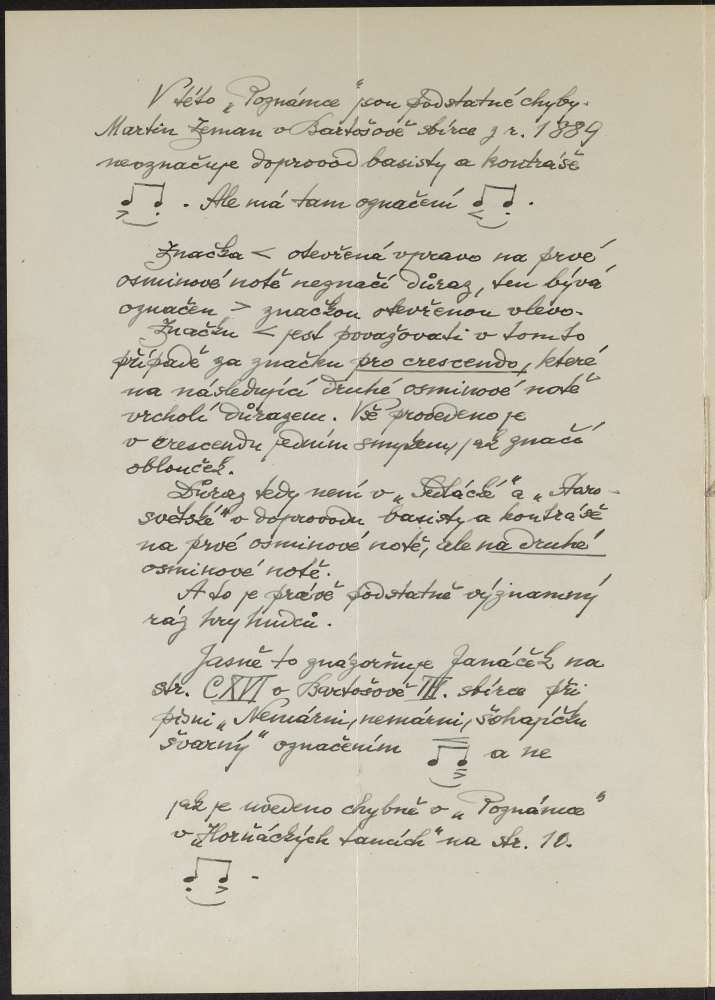 V této „Poznámce" jsou podstatné chyby.
Martin Zeman v Bartošově sbírce z r. 1889
neoznačuje doprovod basisty a kontráše
. Ale má tam označení .
Značka < otevřená vpravo na prvé
osminové notě neznačí důraz, ten bývá
označen > značkou otevřenou vlevo.
Značku < jest považovati v tomto
případě za značku pro crescendo, které
na následující druhé osminové notě
vrcholí důrazem. Vše provedeno je
v crescendu jedním smykem, jak značí
oblouček.
Důraz tedy není v „Sedlácké" a „Staro-
světské" v doprovodu basisty a kontráše
na prvé osminové notě, ale na druhé
osminové notě.
A to je právě podstatně významný
ráz hry hudců.
Jasně to znázorňuje Janáček na
str. CXVI v Bartošově III. sbírce při
písni „Nemárni, nemárni, šohajíčku
švarný" označením a ne
jak je uvedeno chybně v „Poznámce"
v „Horňáckých tancích" na str. 10.